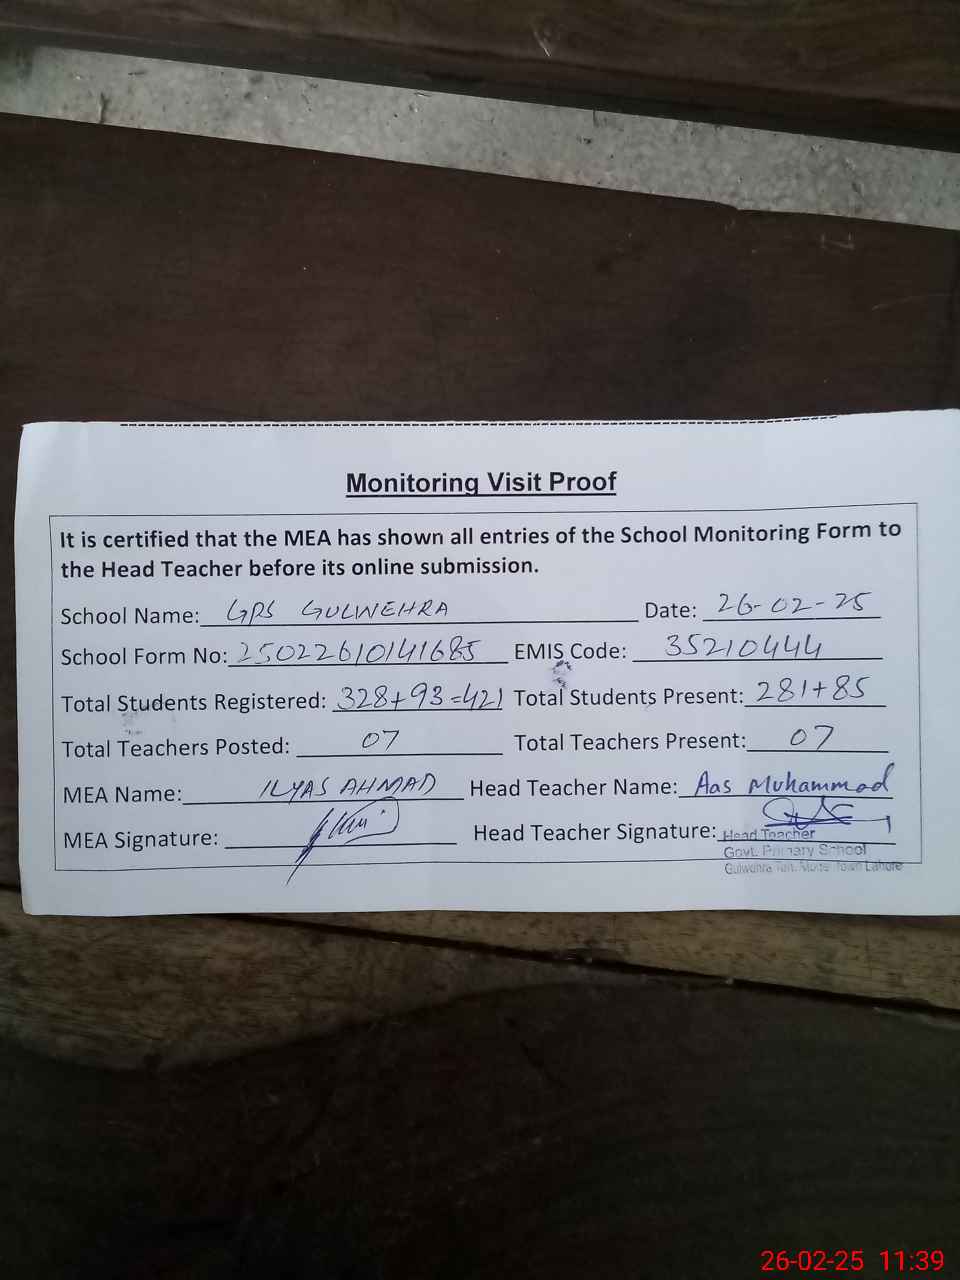 Monitoring Visit Proof
It is certified that the MEA has shown all entries of the School Monitoring Form to
the Head Teacher before its online submission.
School Name: GPS GULWEHRA Date: 26-02-25
School Form No: 25022610141685 EMIS Code: 35210444
Total Students Registered: 328+93=421 Total Students Present: 281+85
Total Teachers Posted: 07 Total Teachers Present: 07
MEA Name: ILYAS AHMAD Head Teacher Name: Aas Muhammad
MEA Signature: Head Teacher Signature:
Head Teacher
Govt. Primary School
Gulwehra Teh. Model Town Lahore
26-02-25 11:39